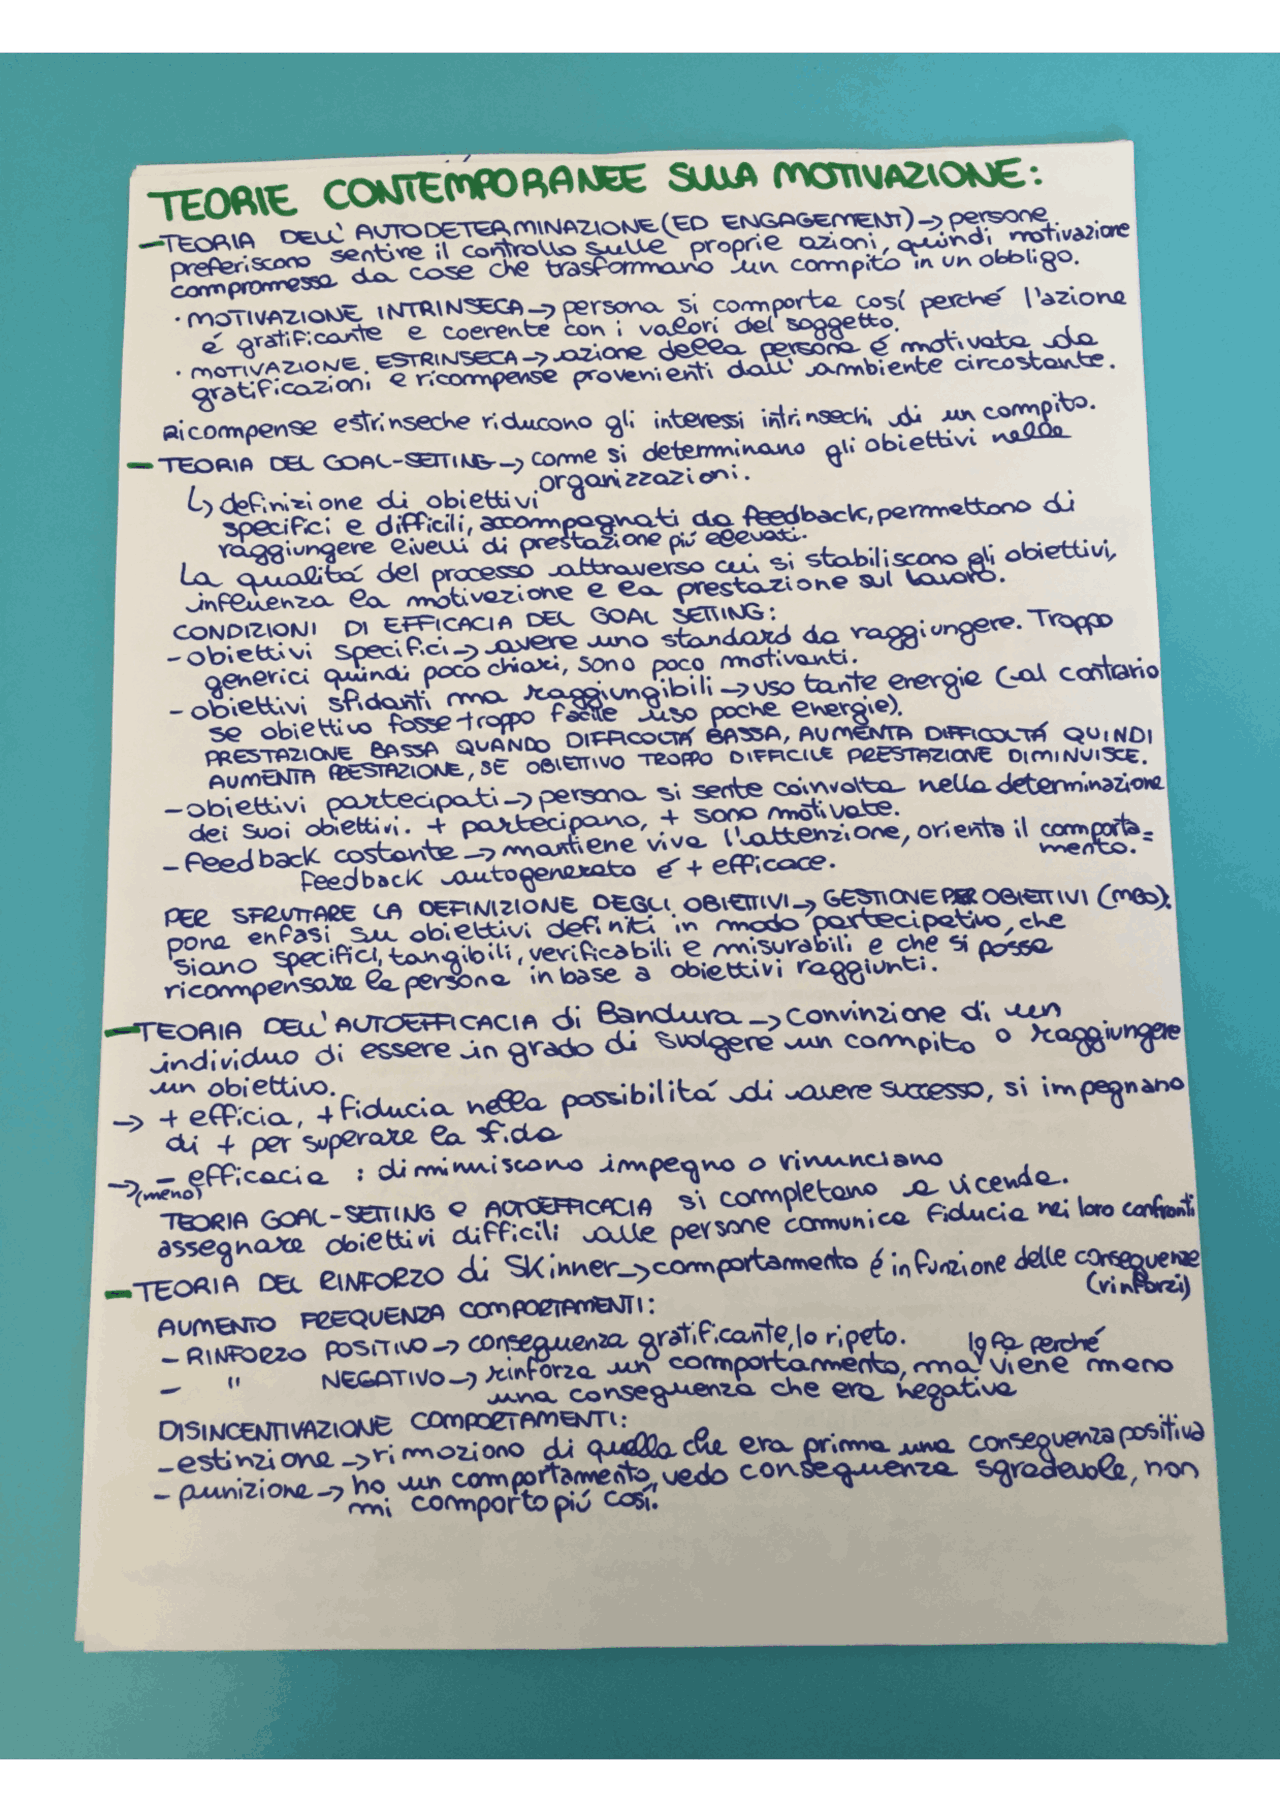 TEORIE CONTEMPORANEE SULLA MOTIVAZIONE:
- TEORIA DELL'AUTODETERMINAZIONE (ED ENGAGEMENT) -> persone
preferiscono sentire il controllo sulle proprie azioni, quindi motivazione
compromessa da cose che trasformano un compito in un obbligo.
· MOTIVAZIONE INTRINSECA -> persona si comporta cosí perché l'azione
é gratificante e coerente con i valori del soggetto.
· MOTIVAZIONE ESTRINSECA -> azione della persona é motivata da
gratificazioni e ricompense provenienti dall'ambiente circostante.
Ricompense estrinseche riducono gli interessi intrinsechi di un compito.
- TEORIA DEL GOAL-SETTING -> come si determinano gli obiettivi nelle
organizzazioni.
↳ definizione di obiettivi
specifici e difficili, accompagnati da feedback, permettono di
raggiungere livelli di prestazione piú elevati.
La qualitá del processo attraverso cui si stabiliscono gli obiettivi,
influenza la motivazione e la prestazione sul lavoro.
CONDIZIONI DI EFFICACIA DEL GOAL SETTING:
- obiettivi specifici -> avere uno standard da raggiungere. Troppo
generici quindi poco chiari, sono poco motivanti.
- obiettivi sfidanti ma raggiungibili -> uso tante energie (al contrario
se obiettivo fosse troppo facile uso poche energie).
PRESTAZIONE BASSA QUANDO DIFFICOLTÁ BASSA, AUMENTA DIFFICOLTÁ QUINDI
AUMENTA PRESTAZIONE, SE OBIETTIVO TROPPO DIFFICILE PRESTAZIONE DIMINUISCE.
- obiettivi partecipati -> persona si sente coinvolta nella determinazione
dei suoi obiettivi. + partecipano, + sono motivate.
- feedback costante -> mantiene viva l'attenzione, orienta il comporta=
mento.
feedback autogenerato é + efficace.
PER SFRUTTARE LA DEFINIZIONE DEGLI OBIETTIVI -> GESTIONE PER OBIETTIVI (MBO):
pone enfasi su obiettivi definiti in modo partecipativo, che
siano specifici, tangibili, verificabili e misurabili e che si possa
ricompensare la persona in base a obiettivi raggiunti.
- TEORIA DELL'AUTOEFFICACIA di Bandura -> Convinzione di un
individuo di essere in grado di svolgere un compito o raggiungere
un obiettivo.
-> + efficia, + fiducia nella possibilitá di avere successo, si impegnano
di + per superare la sfida
-> - efficacia : diminuiscono impegno o rinunciano
(meno)
TEORIA GOAL-SETTING e AUTOEFFICACIA si completano a vicenda.
assegnare obiettivi difficili alle persone comunica fiducia nei loro confronti
- TEORIA DEL RINFORZO di Skinner -> comportamento é in funzione delle conseguenze
(rinforzi)
AUMENTO FREQUENZA COMPORTAMENTI:
- RINFORZO POSITIVO -> conseguenza gratificante, lo ripeto.
lo fa perché
- " NEGATIVO -> rinforza un comportamento, ma viene meno
una conseguenza che era negativa
DISINCENTIVAZIONE COMPORTAMENTI:
- estinzione -> rimoziono di quella che era prima una conseguenza positiva
- punizione -> ho un comportamento, vedo conseguenza sgradevole, non
mi comporto piú cosí.